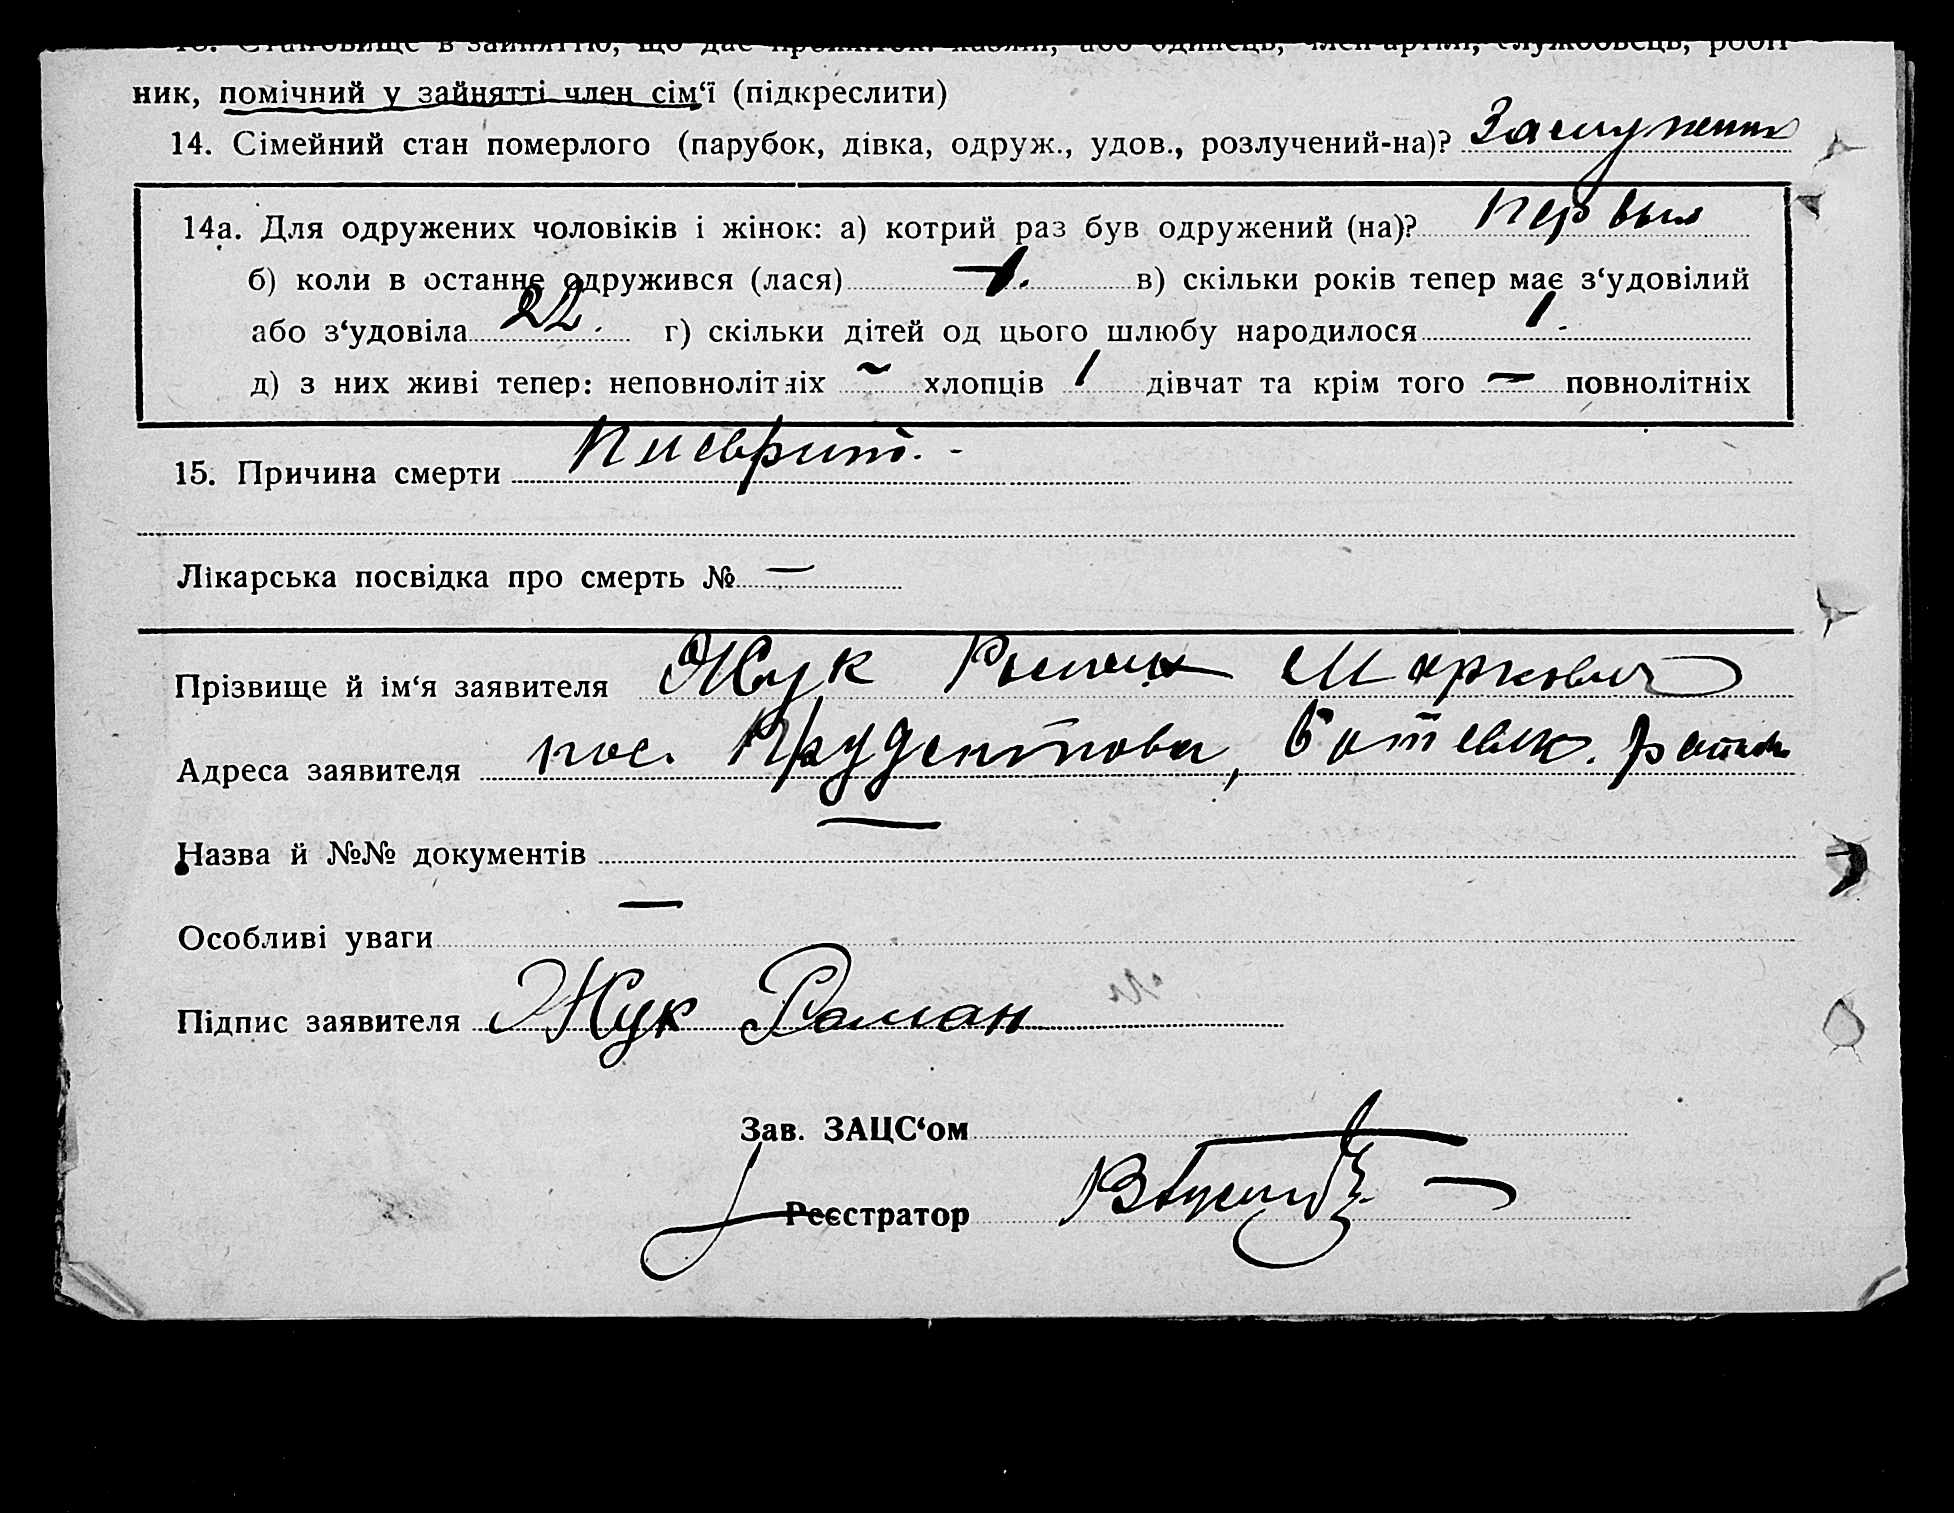 13. Становище в зайняттю, що дає прожиток: хазяїн, або одинець, член артілі, службовець, робіт
ник, помічний у зайнятті член сім‘ї (підкреслити)
14. Сімейний стан померлого (парубок, дівка, одруж., удов., розлучений-на)? Замужняя
14а. Для одружених чоловіків і жінок: а) котрий раз був одружений (на)? первый
б) коли в останнє одружився (лася) — 1. в) скільки років тепер має з‘удовілий
або з‘удовіла 22. г) скільки дітей од цього шлюбу народилося 1.
д) з них живі тепер: неповнолітніх ~ хлопців 1 дівчат та крім того — повнолітніх
15. Причина смерти Плеврит. -
Лікарська посвідка про смерть № —
Прізвище й ім‘я заявителя Жук Роман Маркович
Адреса заявителя пос. Ботиевск. района
Назва й №№ документів —
Особливі уваги —
Підпис заявителя Жук Роман
Зав. ЗАЦС‘ом
Реєстратор